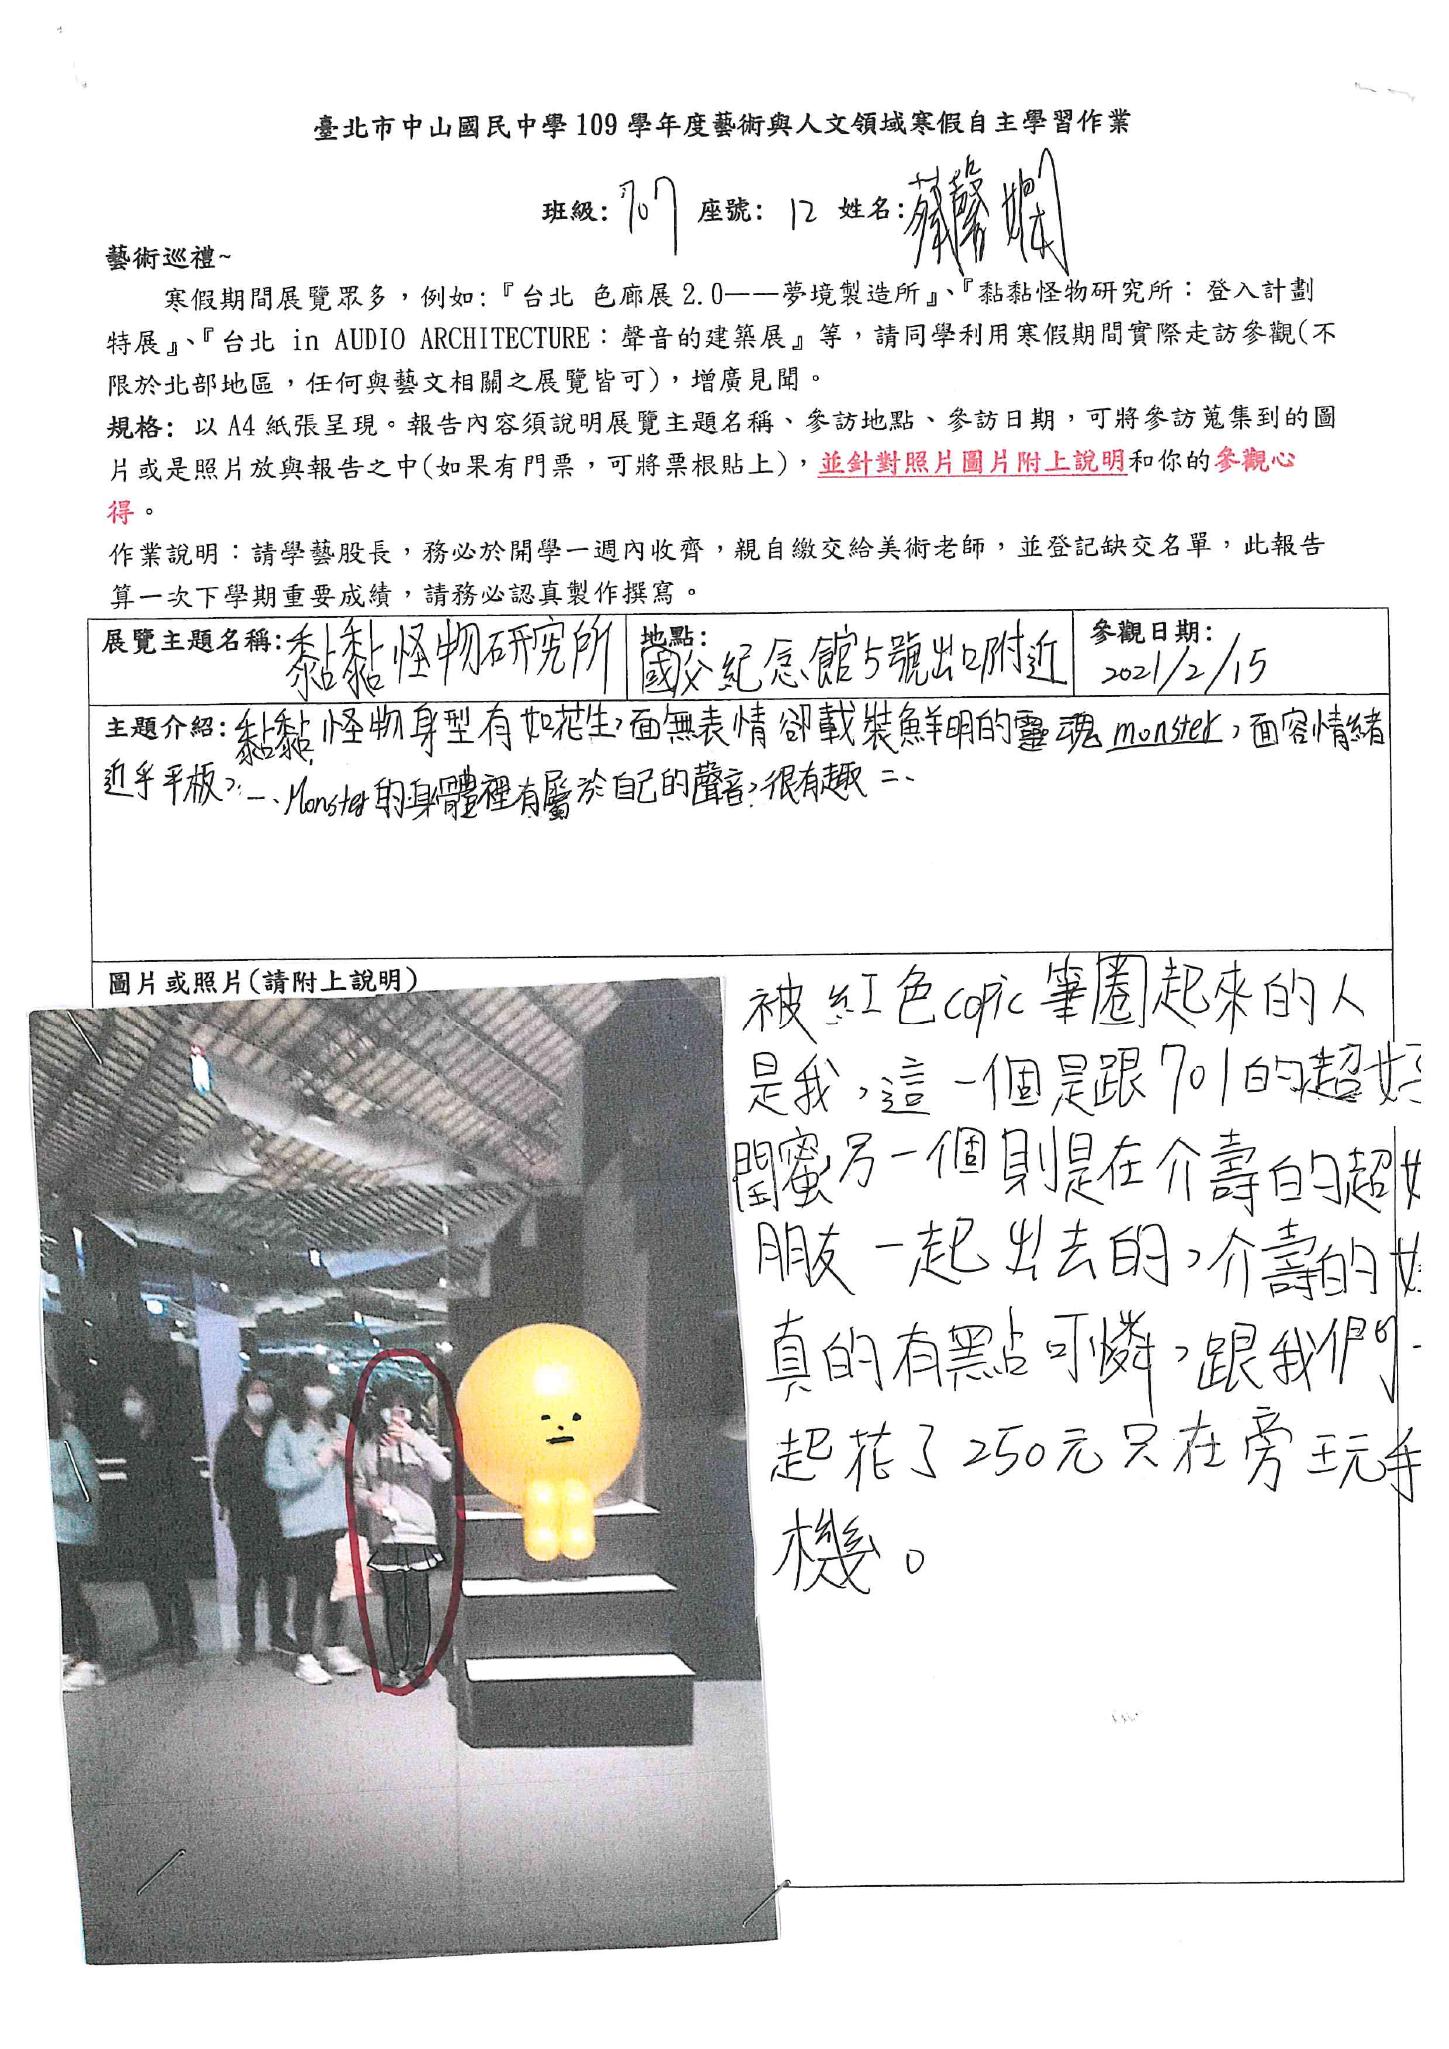 臺北市中山國民中學109學年度藝術與人文領域寒假自主學習作業
班級: 707 座號: 12 姓名:蔡馨嫻
藝術巡禮~
寒假期間展覽眾多，例如:『台北 色廊展2.0——夢境製造所』、『黏黏怪物研究所：登入計劃
特展』、『台北 in AUDIO ARCHITECTURE：聲音的建築展』等，請同學利用寒假期間實際走訪參觀(不
限於北部地區，任何與藝文相關之展覽皆可)，增廣見聞。
規格: 以A4紙張呈現。報告內容須說明展覽主題名稱、參訪地點、參訪日期，可將參訪蒐集到的圖
片或是照片放與報告之中(如果有門票，可將票根貼上)，並針對照片圖片附上說明和你的參觀心
得。
作業說明：請學藝股長，務必於開學一週內收齊，親自繳交給美術老師，並登記缺交名單，此報告
算一次下學期重要成績，請務必認真製作撰寫。
展覽主題名稱:黏黏怪物研究所
地點:國父紀念館5號出口附近
參觀日期:2021/2/15
主題介紹:黏黏怪物身型有如花生,面無表情卻載裝鮮明的靈魂monster,面容情緒
近乎平板,一、Monster的身體裡有屬於自己的聲音,很有趣二、
圖片或照片(請附上說明)
被紅色copic筆圈起來的人
是我,這一個是跟701的超好
閨蜜另一個則是在介壽的超
朋友一起出去的,介壽的
真的有點可憐,跟我們一
起花了250元只在旁玩手
機。